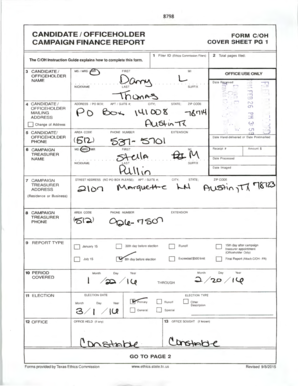 8758
CANDIDATE / OFFICEHOLDER
CAMPAIGN FINANCE REPORT
FORM C/OH
COVER SHEET PG 1
The C/OH Instruction Guide explains how to complete this form.
1 Filer ID (Ethics Commission Filers)
2 Total pages filed:
3 CANDIDATE / OFFICEHOLDER NAME
FIRST
MI
Danny L
NICKNAME LAST SUFFIX
Thomas
OFFICE USE ONLY
Date Received
4 CANDIDATE / OFFICEHOLDER MAILING ADDRESS
Change of Address
ADDRESS / PO BOX; APT / SUITE #; CITY; STATE; ZIP CODE
PO Box 141008 -78714
Austin TX
5 CANDIDATE / OFFICEHOLDER PHONE
AREA CODE PHONE NUMBER EXTENSION
(512)
Date Hand-delivered or Date Postmarked
6 CAMPAIGN TREASURER NAME
FIRST
Stella M
Receipt # Amount $
Date Processed
NICKNAME LAST SUFFIX
Pullin
Date Imaged
7 CAMPAIGN TREASURER ADDRESS
(Residence or Business)
STREET ADDRESS (NO PO BOX PLEASE); APT / SUITE #; CITY; STATE; ZIP CODE
2107 LN Austin TX
8 CAMPAIGN TREASURER PHONE
AREA CODE PHONE NUMBER EXTENSION
(512)
9 REPORT TYPE
January 15
30th day before election
Runoff
15th day after campaign treasurer appointment (Officeholder Only)
July 15
8th day before election
Exceeded $500 limit
Final Report (Attach C/OH - FR)
10 PERIOD COVERED
Month Day Year
THROUGH
Month Day Year
2 / 20 / 16
11 ELECTION
ELECTION DATE
Month Day Year
3 / 1 / 16
ELECTION TYPE
Primary
Runoff
Other Description
General
Special
12 OFFICE
OFFICE HELD (if any)
Constable
13 OFFICE SOUGHT (if known)
Constable
GO TO PAGE 2
Forms provided by Texas Ethics Commission
www.ethics.state.tx.us